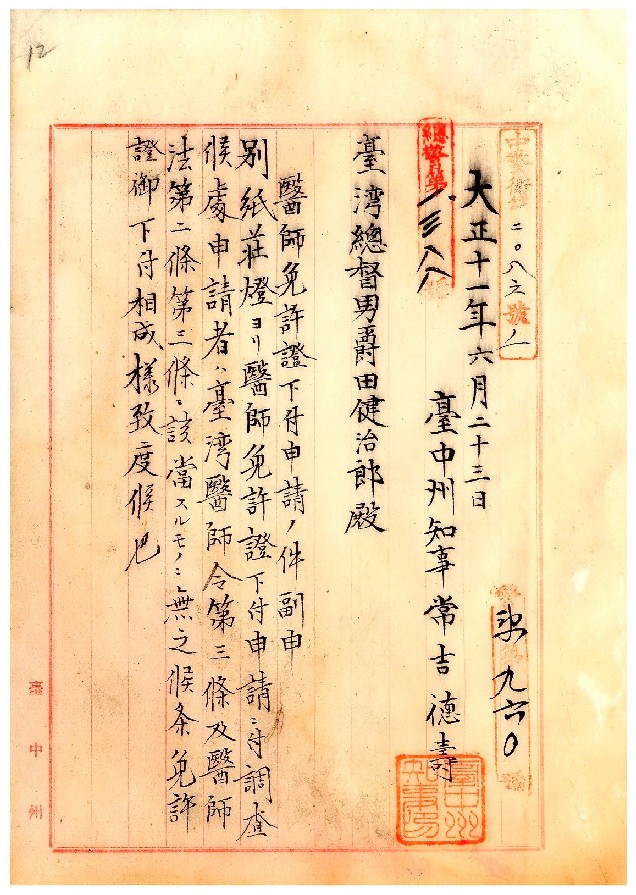 12
中警衛第二〇八之號ノ一
大正十一年六月二十三日
總警第一三八八號
臺中州知事常吉德壽
臺中州知事印
臺湾總督男爵田健治郎殿
醫師免許證下付申請ノ件副申
別紙莊燈ヨリ醫師免許證下付申請ニ付調査
候處申請者ハ臺湾醫師令第三條及醫師
法第二條第三條ニ該當スルモノニ無之候条免許
證御下付相成様致度候也
九六〇
臺中州